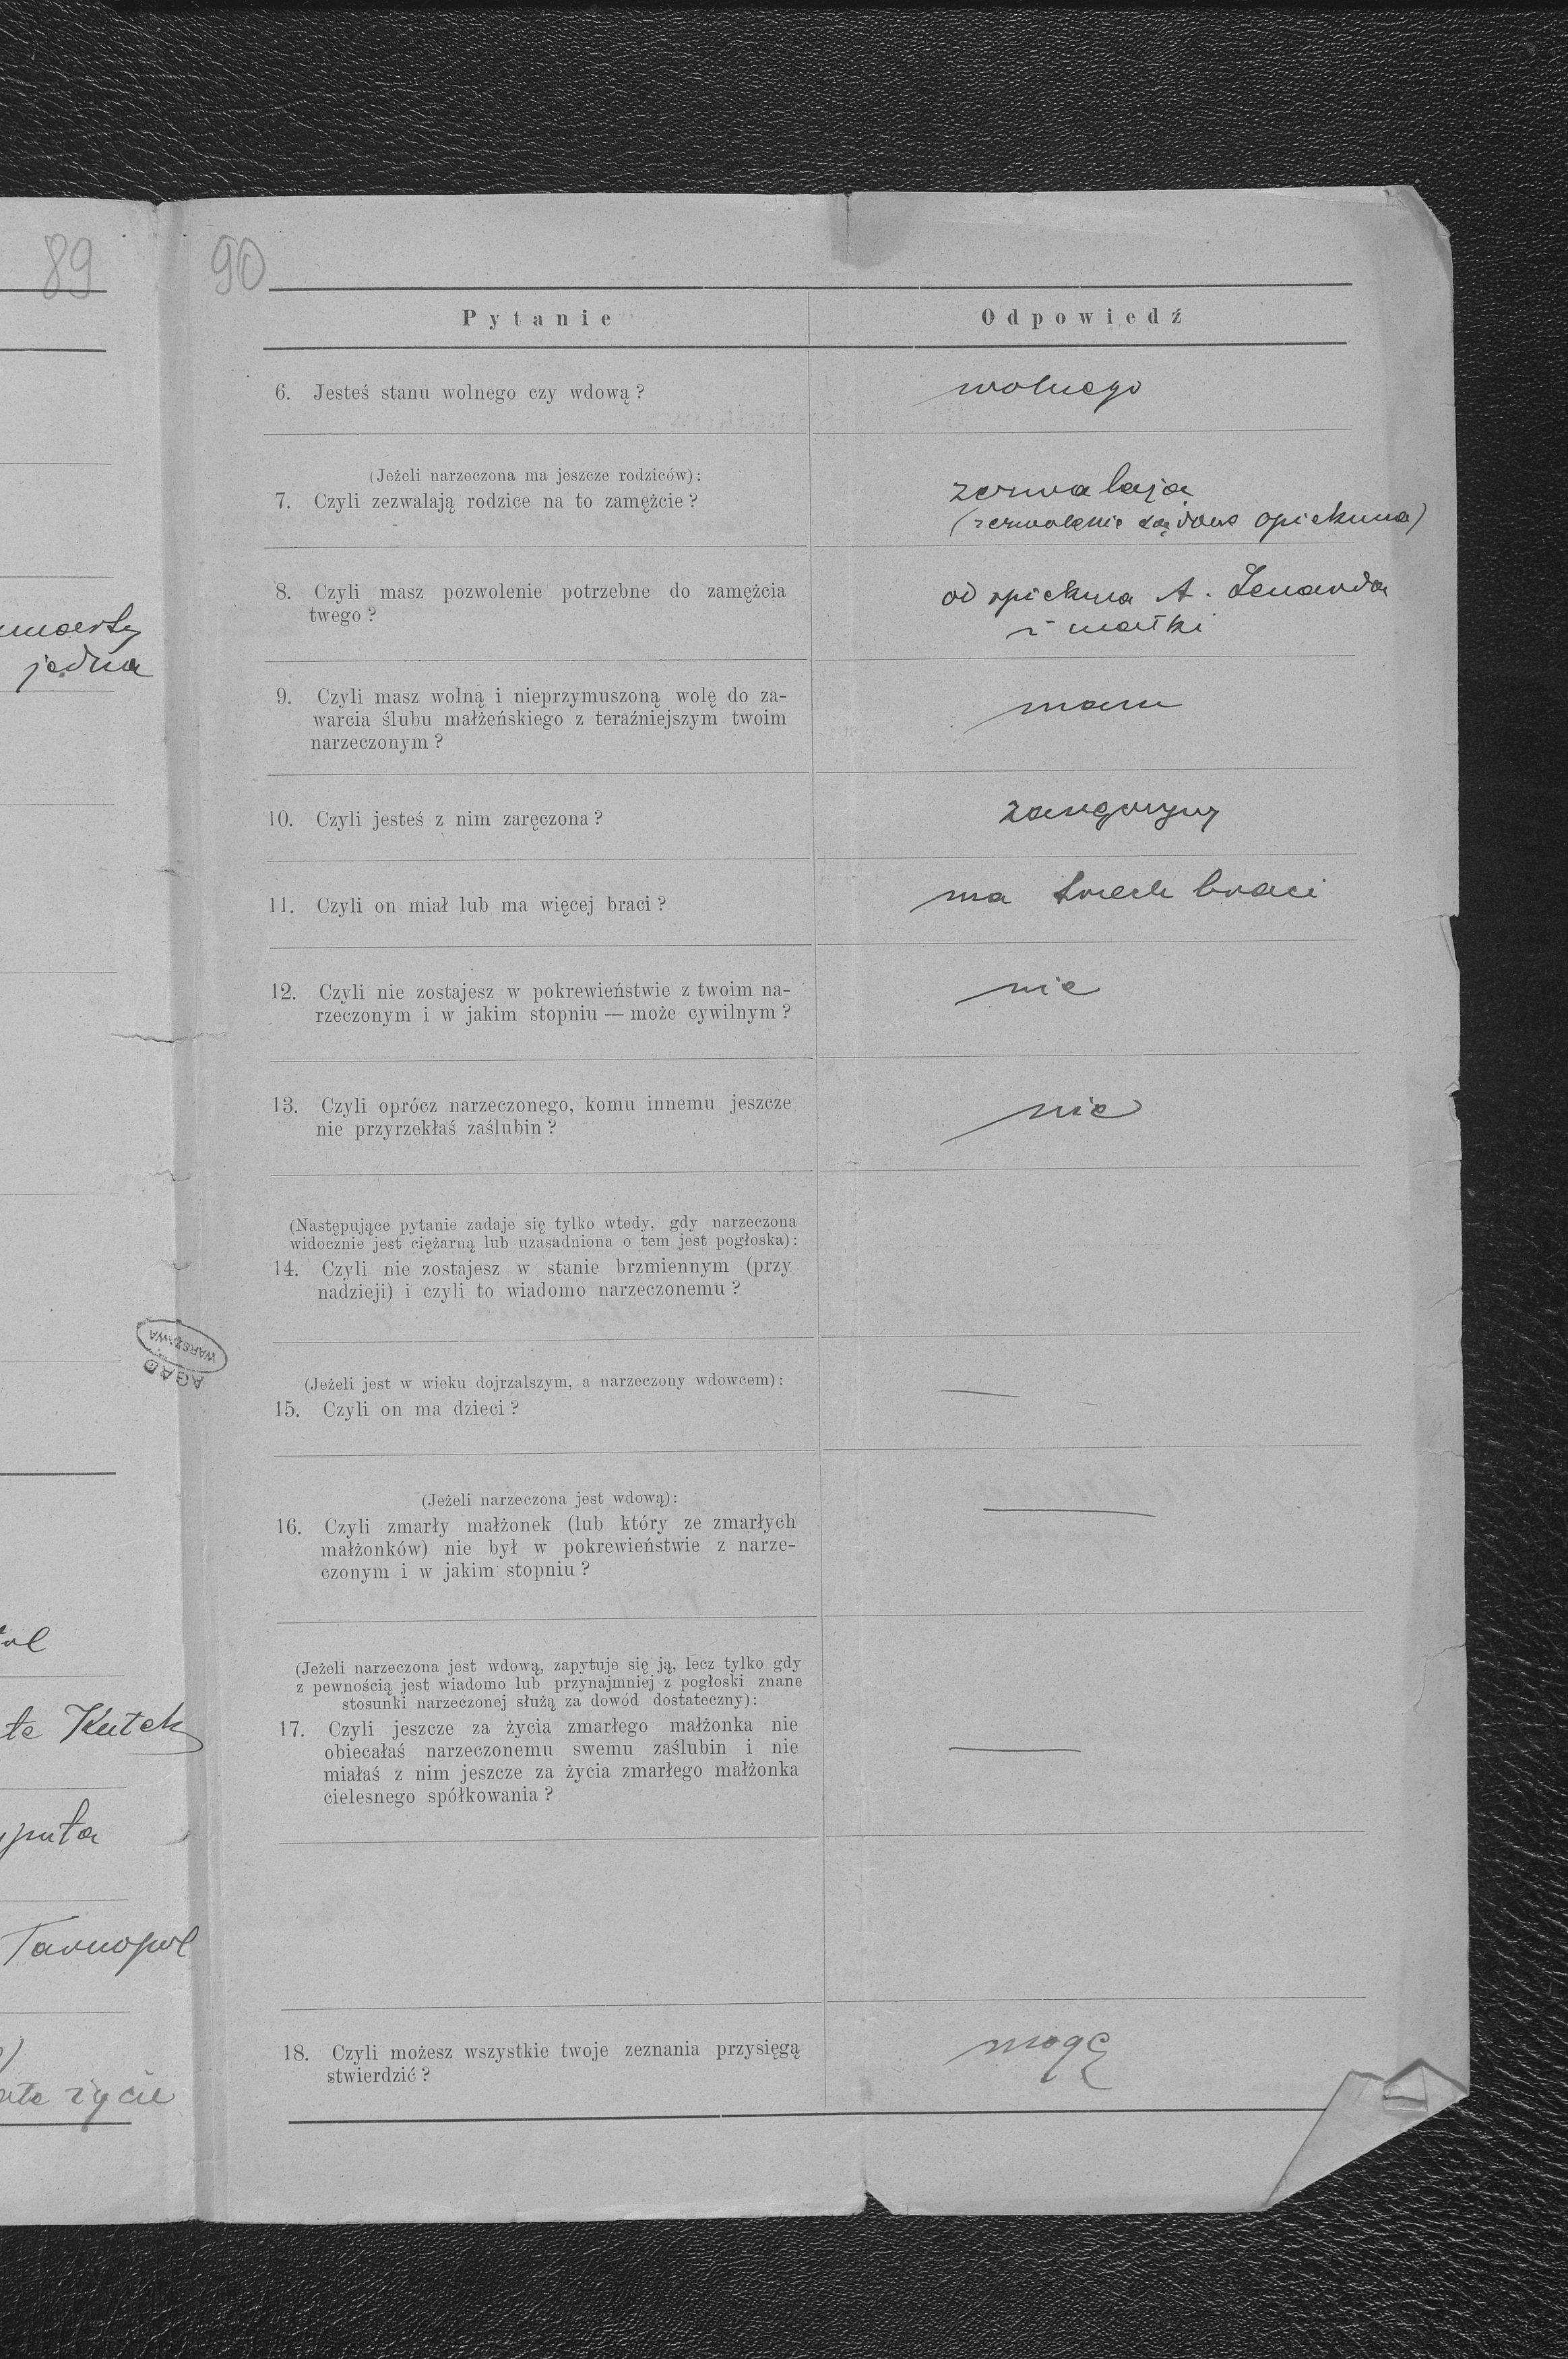 89
90
Pytanie
Odpowiedź
6. Jesteś stanu wolnego czy wdową?
wolnego
(Jeżeli narzeczona ma jeszcze rodziców):
7. Czyli zezwalają rodzice na to zamężcie?
zezwalają
(zezwolenie sądowe opiekuna)
8. Czyli masz pozwolenie potrzebne do zamężcia
twego?
od opiekuna A. Lenarda
i matki
9. Czyli masz wolną i nieprzymuszoną wolę do za-
warcia ślubu małżeńskiego z teraźniejszym twoim
narzeczonym?
mam
10. Czyli jesteś z nim zaręczona?
11. Czyli on miał lub ma więcej braci?
ma trzech braci
12. Czyli nie zostajesz w pokrewieństwie z twoim na-
rzeczonym i w jakim stopniu — może cywilnym?
nie
13. Czyli oprócz narzeczonego, komu innemu jeszcze
nie przyrzekłaś zaślubin?
nie
(Następujące pytanie zadaje się tylko wtedy, gdy narzeczona
widocznie jest ciężarną lub uzasadniona o tem jest pogłoska):
14. Czyli nie zostajesz w stanie brzmiennym (przy
nadzieji) i czyli to wiadomo narzeczonemu?
(Jeżeli jest w wieku dojrzalszym, a narzeczony wdowcem):
15. Czyli on ma dzieci?
(Jeżeli narzeczona jest wdową):
16. Czyli zmarły małżonek (lub który ze zmarłych
małżonków) nie był w pokrewieństwie z narze-
czonym i w jakim stopniu?
(Jeżeli narzeczona jest wdową, zapytuje się ją, lecz tylko gdy
z pewnością jest wiadomo lub przynajmniej z pogłoski znane
stosunki narzeczonej służą za dowód dostateczny):
17. Czyli jeszcze za życia zmarłego małżonka nie
obiecałaś narzeczonemu swemu zaślubin i nie
miałaś z nim jeszcze za życia zmarłego małżonka
cielesnego spółkowania?
18. Czyli możesz wszystkie twoje zeznania przysięgą
stwierdzić?
mogę
jedna
Kutek
Tarnopol
życie
AGAD
WARSZAWA